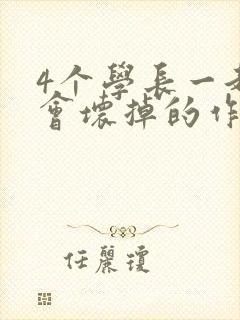 4个學長一
會壞掉的作
任麗瓊